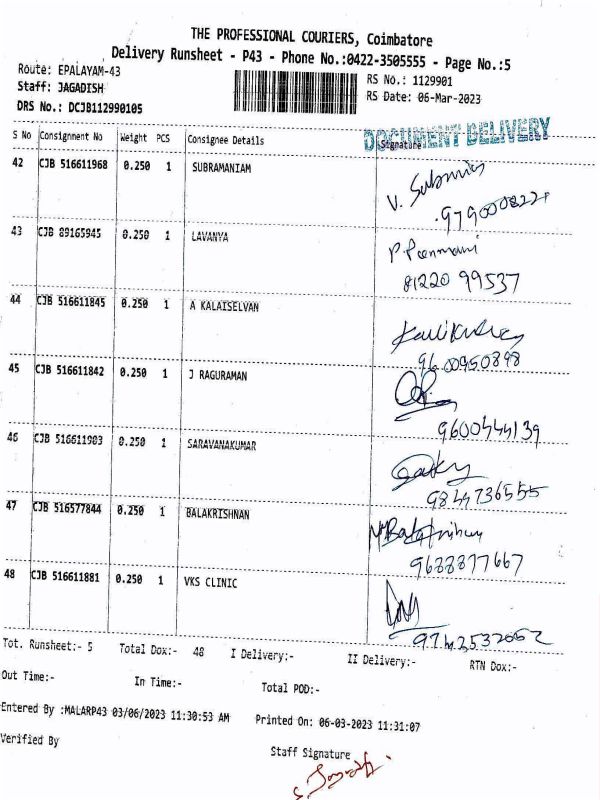 THE PROFESSIONAL COURIERS, Coimbatore
Delivery Runsheet - P43 - Phone No.:0422-3505555 - Page No.:5
Route: EPALAYAM-43
RS No.: 1129901
Staff: JAGADISH
RS Date: 06-Mar-2023
DRS No.: DCJB112990105
DOCUMENT DELIVERY
S No Consignment No Weight PCS Consignee Details Signature
42 CJB 516611968 0.250 1 SUBRAMANIAM
43 CJB 89165945 0.250 1 LAVANYA
81220 99537
44 CJB 516611845 0.250 1 A KALAISELVAN
9600950898
45 CJB 516611842 0.250 1 J RAGURAMAN
9600444139
46 CJB 516611903 0.250 1 SARAVANAKUMAR
9844736555
47 CJB 516577844 0.250 1 BALAKRISHNAN
48 CJB 516611881 0.250 1 VKS CLINIC
Tot. Runsheet:- 5 Total Dox:- 48 I Delivery:- II Delivery:- RTN Dox:-
Out Time:- In Time:- Total POD:-
Entered By :MALARP43 03/06/2023 11:30:53 AM Printed On: 06-03-2023 11:31:07
Verified By Staff Signature